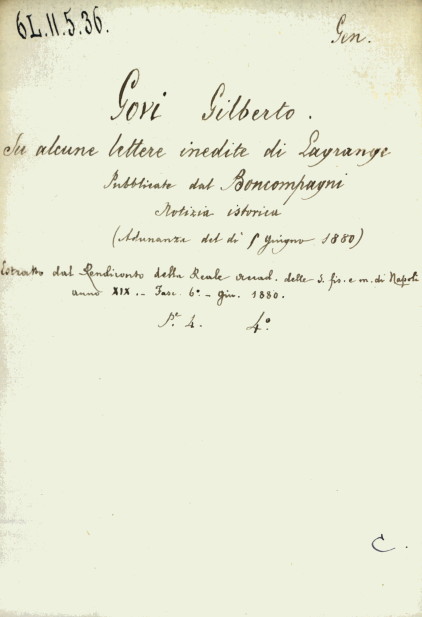 6L.11.5.36.
Gen.
Govi Gilberto.
Su alcune lettere inedite di Lagrange
Pubblicate dal Boncompagni
Notizia istorica
(Adunanza del dì 5 Giugno 1880)
Estratto dal Rendiconto della Reale Accad. delle S. fis. e m. di Napoli
anno XIX. - Fasc. 6º. - Giu. 1880.
4. 4º.
C.